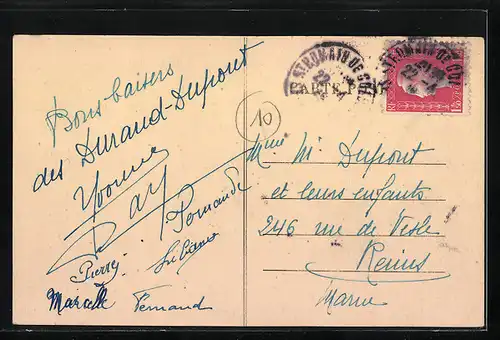 Bons baisers
des Durand-Dupont
Yvonne
Ray
Fernande
Pierre
Liliane
Marcelle
Fernand
10
ST ROMAIN DE
22
CARTE
ST ROMAIN DE
22
Mme M Dupont
et leurs enfants
246 rue de Vesle
Reims
Marne